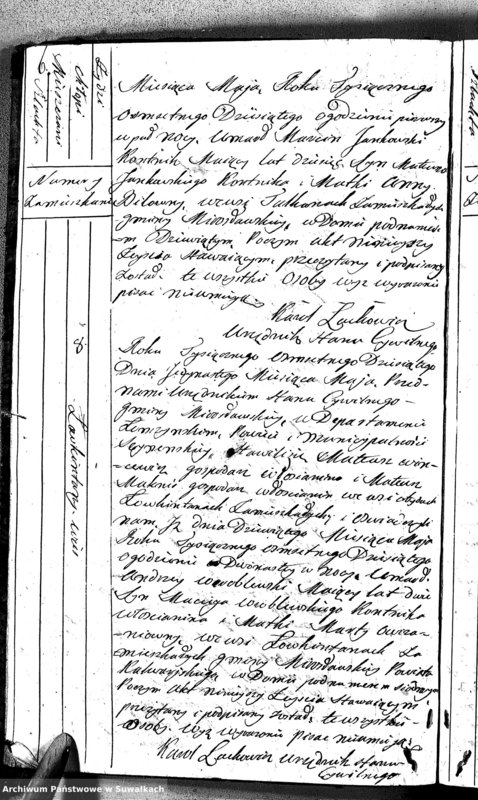 Żydzi
Chłopi
Mieszczanie
Szlachta
Numer
Zamieszkani
Miesiąca Maja Roku Tysiącznego
osmsetnego Dziewiątego o godzinie pierwszy
w puł nocy, Umarł Marcin Jankowski
Kontnik Maiący lat dziesię. Syn Mateusza
Jankowskiego Kontnika i Matki Anny
we wsi Zamieszkałych
gminy Mirosławskiej, w Domu pod numerem
Dziewiątym, Poczym akt ninieyszy
Zeyścia Stawaiącym, przeczytany i podpisany
został. te wszystkie Osoby wyz wyrażone
pisac nieumieją.
Karol Lachowicz
Urzędnik Stanu Cywilnego
8
Roku Tysiącznego osmsetnego Dziewiątego
Dnia Jedynastego Miesiąca Maja, Przed
nami Urzędnikiem Stanu Cywilnego
gminy Mirosławskiej, w Departamencie
Łomżyńskim, Powiecie i Municypalności
Seyneńskiej, Stawili się Mateusz
gospodarz włościanin i Mateusz
gospodarz włościanin we wsi obydwa
Zamieszkałych, i oświadczyli
nam, Iz dnia Dziewiątego Miesiąca Maja
Roku Tysiącznego osmsetnego Dziewiątego
o godzinie Dwonasty w nocy, Umarł
Andrzey Wróblewski Maiący lat dwie
Syn Macieja Wróblewskiego Kontnika
włościanina i Matki Marty
we wsi Za
mieszkałych gminy Mirosławskiej Powiatu
Kalwaryjskiego w Domu pod numerem siodmym
Poczym akt ninieyszy Zeyścia Stawaiącym
przeczytany i podpisany został. te wszystkie
Osoby wyz wyrażone pisac nieumieją.
Karol Lachowicz urzędnik Stanu
Cywilnego
Szlachta
Archiwum Państwowe w Suwałkach